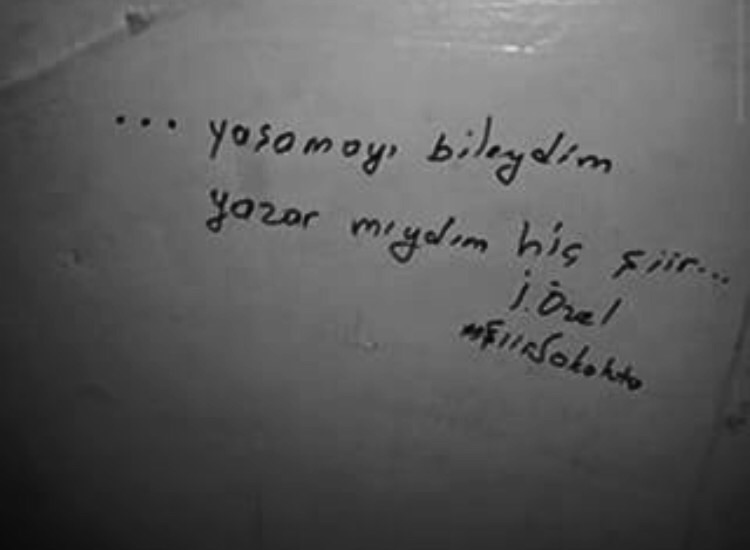 ... yaşamayı bileydim
yazar mıydım hiç şiir...
İ. Özel
#şiirSokakta